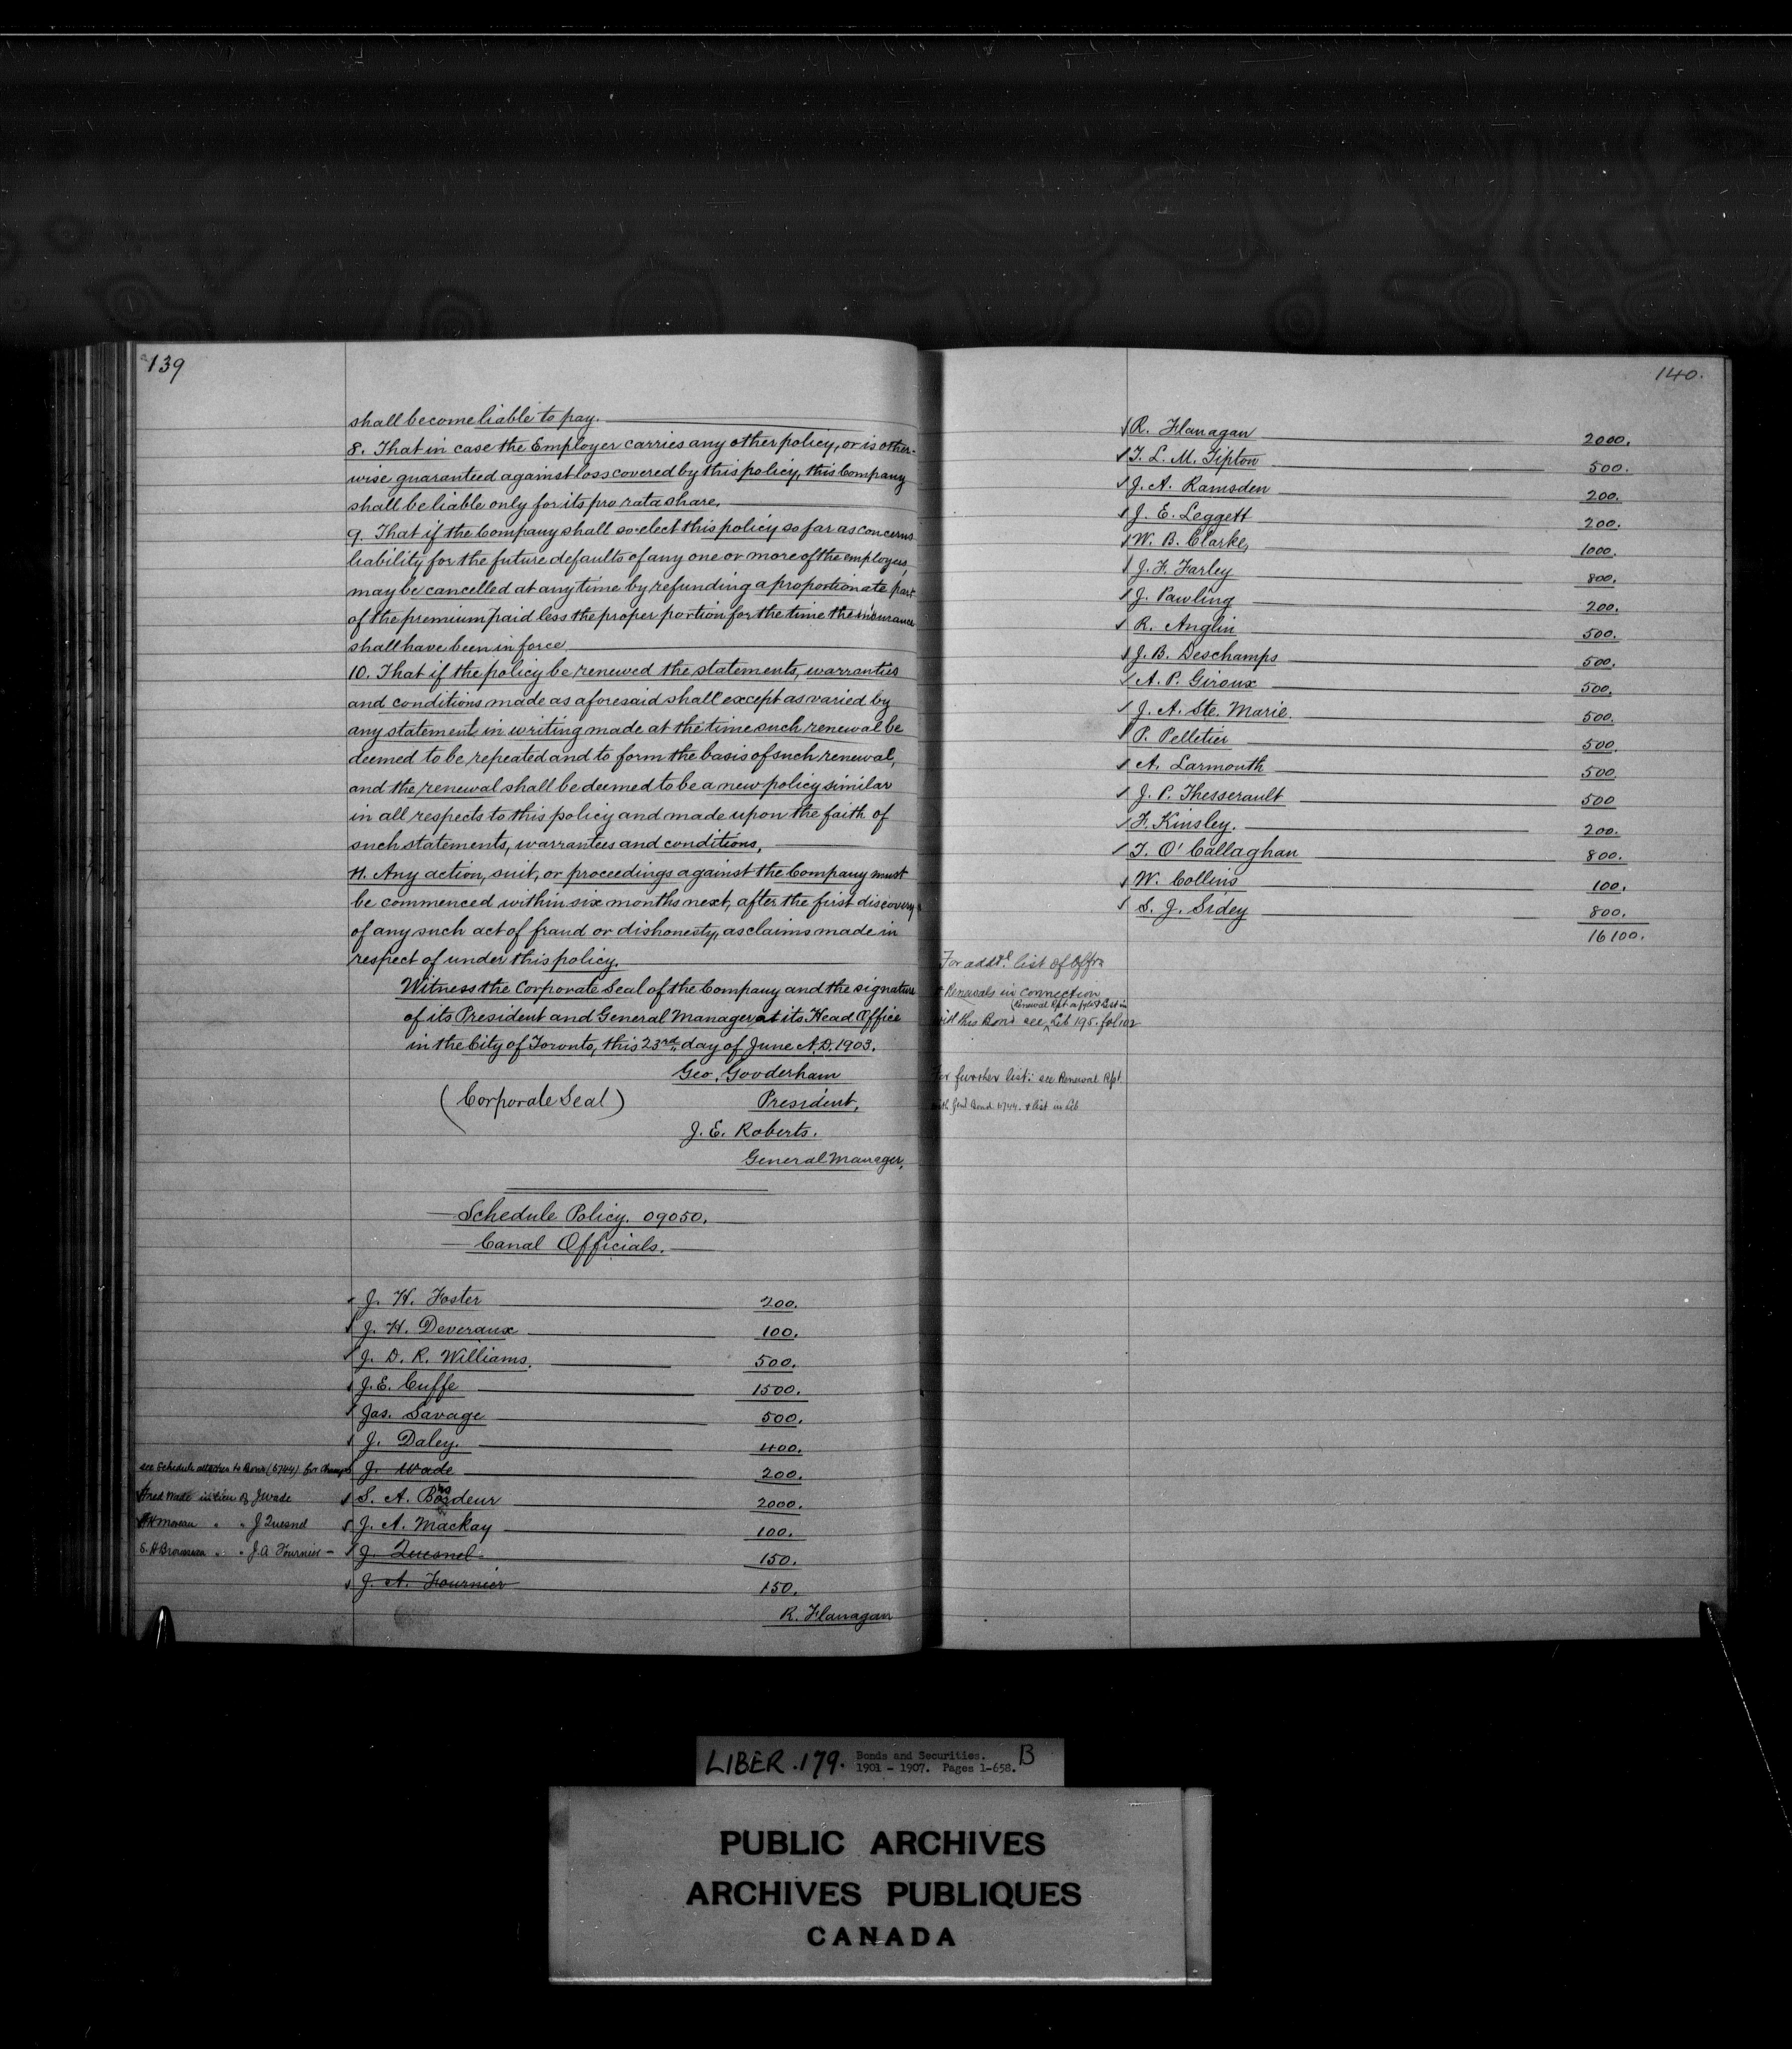 139
shall become liable to pay.
8. That in case the Employer carries any other policy, or is other-
wise guaranteed against loss covered by this policy, this Company
shall be liable only for its pro rata share.
9. That if the Company shall so elect this policy so far as concerns
liability for the future defaults of any one or more of the employees,
may be cancelled at any time by refunding a proportionate part
of the premium paid less the proper portion for the time the insurance
shall have been in force.
10. That if the policy be renewed the statements, warranties
and conditions made as aforesaid shall except as varied by
any statement in writing made at the time such renewal be
deemed to be repeated and to form the basis of such renewal,
and the renewal shall be deemed to be a new policy similar
in all respects to this policy and made upon the faith of
such statements, warrantees and conditions,
11. Any action, suit, or proceedings against the Company must
be commenced within six months next, after the first discovery
of any such act of fraud or dishonesty, as claims made in
respect of under this policy.
Witness the Corporate Seal of the Company and the signature
of its President and General Manager at its Head Office
in the City of Toronto, this 23rd, day of June A.D. 1903.
Geo. Gooderham
(Corporate Seal) President,
J. E. Roberts.
General Manager,
Schedule Policy. 09050.
Canal Officials.
J. H. Foster 200.
J. H. Deveraux 100.
J. D. R. Williams. 500.
J. E. Cuffe 1500.
Jas. Savage 500.
J. Daley. 400.
see Schedule attached to Bond (5744) for changes J. Wade 200.
Fred Wade in lieu of J Wade S. A. Bordeur 2000.
Moreau " " J Quesnel J. A. Mackay 100.
S. A Brousseau " " J. A Fournier - J. Quesnel 150.
J. A. Fournier 150.
R. Flanagan
140.
R. Flanagan 2000.
T. L. M. Tipton 500.
J. A. Ramsden 200.
J. E. Leggett 200.
W. B. Clarke, 1000.
J. F. Farley 800.
J. Pawling 200.
R. Anglin 500.
J. B. Deschamps 500.
A. P. Giroux 500.
J. A. Ste. Marie. 500.
P. Pelletier 500.
A. Larmonth 500.
J. P. Thesserault 500
F. Kinsley. 200.
T. O'Callaghan 800.
W. Collins 100.
S. J. Sidey 800.
16100.
For addtl. list of Offrs
& Renewals in connection
with this Bond see Lib 195. fol 102
(Renewal Rpt
For further list: see Renewal Rpt
with Genl Bond 5744. & list in Lib
LIBER. 179. Bonds and Securities. B
1901 - 1907. Pages 1-658.
PUBLIC ARCHIVES
ARCHIVES PUBLIQUES
CANADA